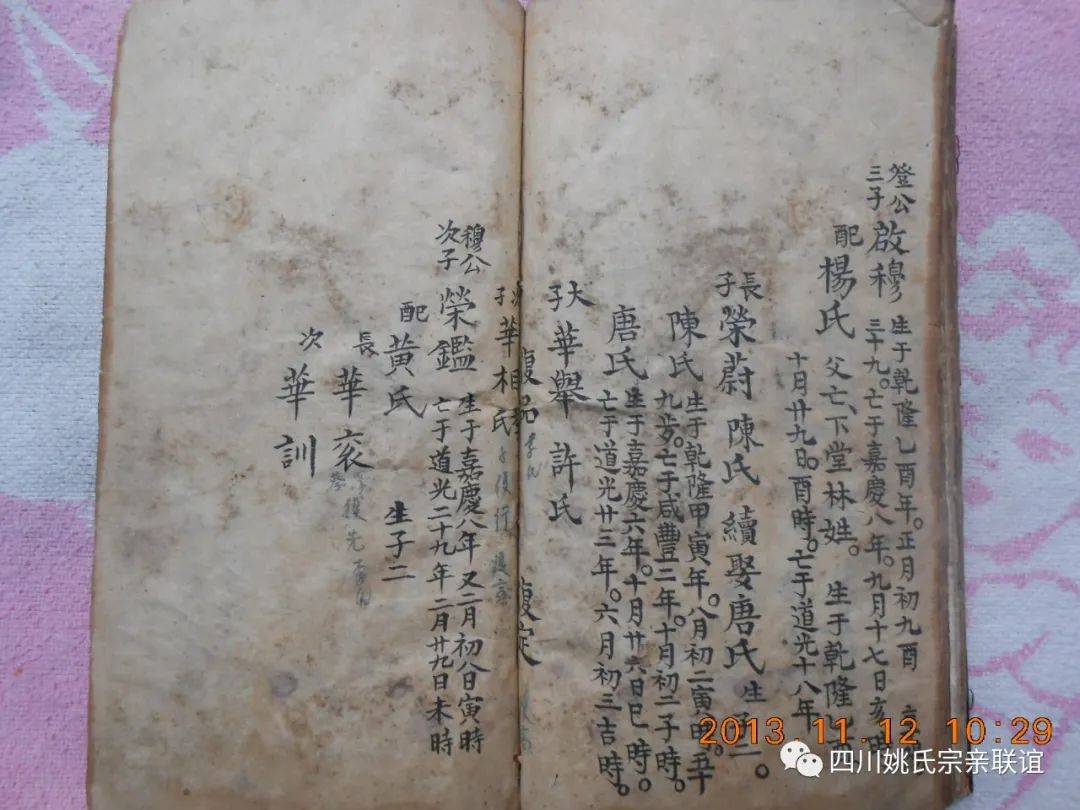 登公
三子
啟穆
生于乾隆乙酉年。正月初九酉
三十九。亡于嘉慶八年。九月十七日亥時
配
楊氏
父亡下堂林姓。生于乾隆
十月廿九日。酉時。亡于道光十八年
長
子
榮蔚 陳氏 續娶唐氏 生子二。
陳氏
生于乾隆甲寅年。八月初二寅時。五十
九岁。亡于咸豐二年。十月初二子時。
唐氏
生于嘉慶六年。十月廿六日巳時。
亡于道光廿三年。六月初三吉時。
大
子
華舉 許氏
復
次
子
華相
氏
穆公
次子
榮鑑
生于嘉慶八年又二月初八日寅時
亡于道光二十九年二月廿九日未時
配
黃氏
生子二
長
華袞
復先
次
華訓
2013.11.12 10:29
四川姚氏宗亲联谊